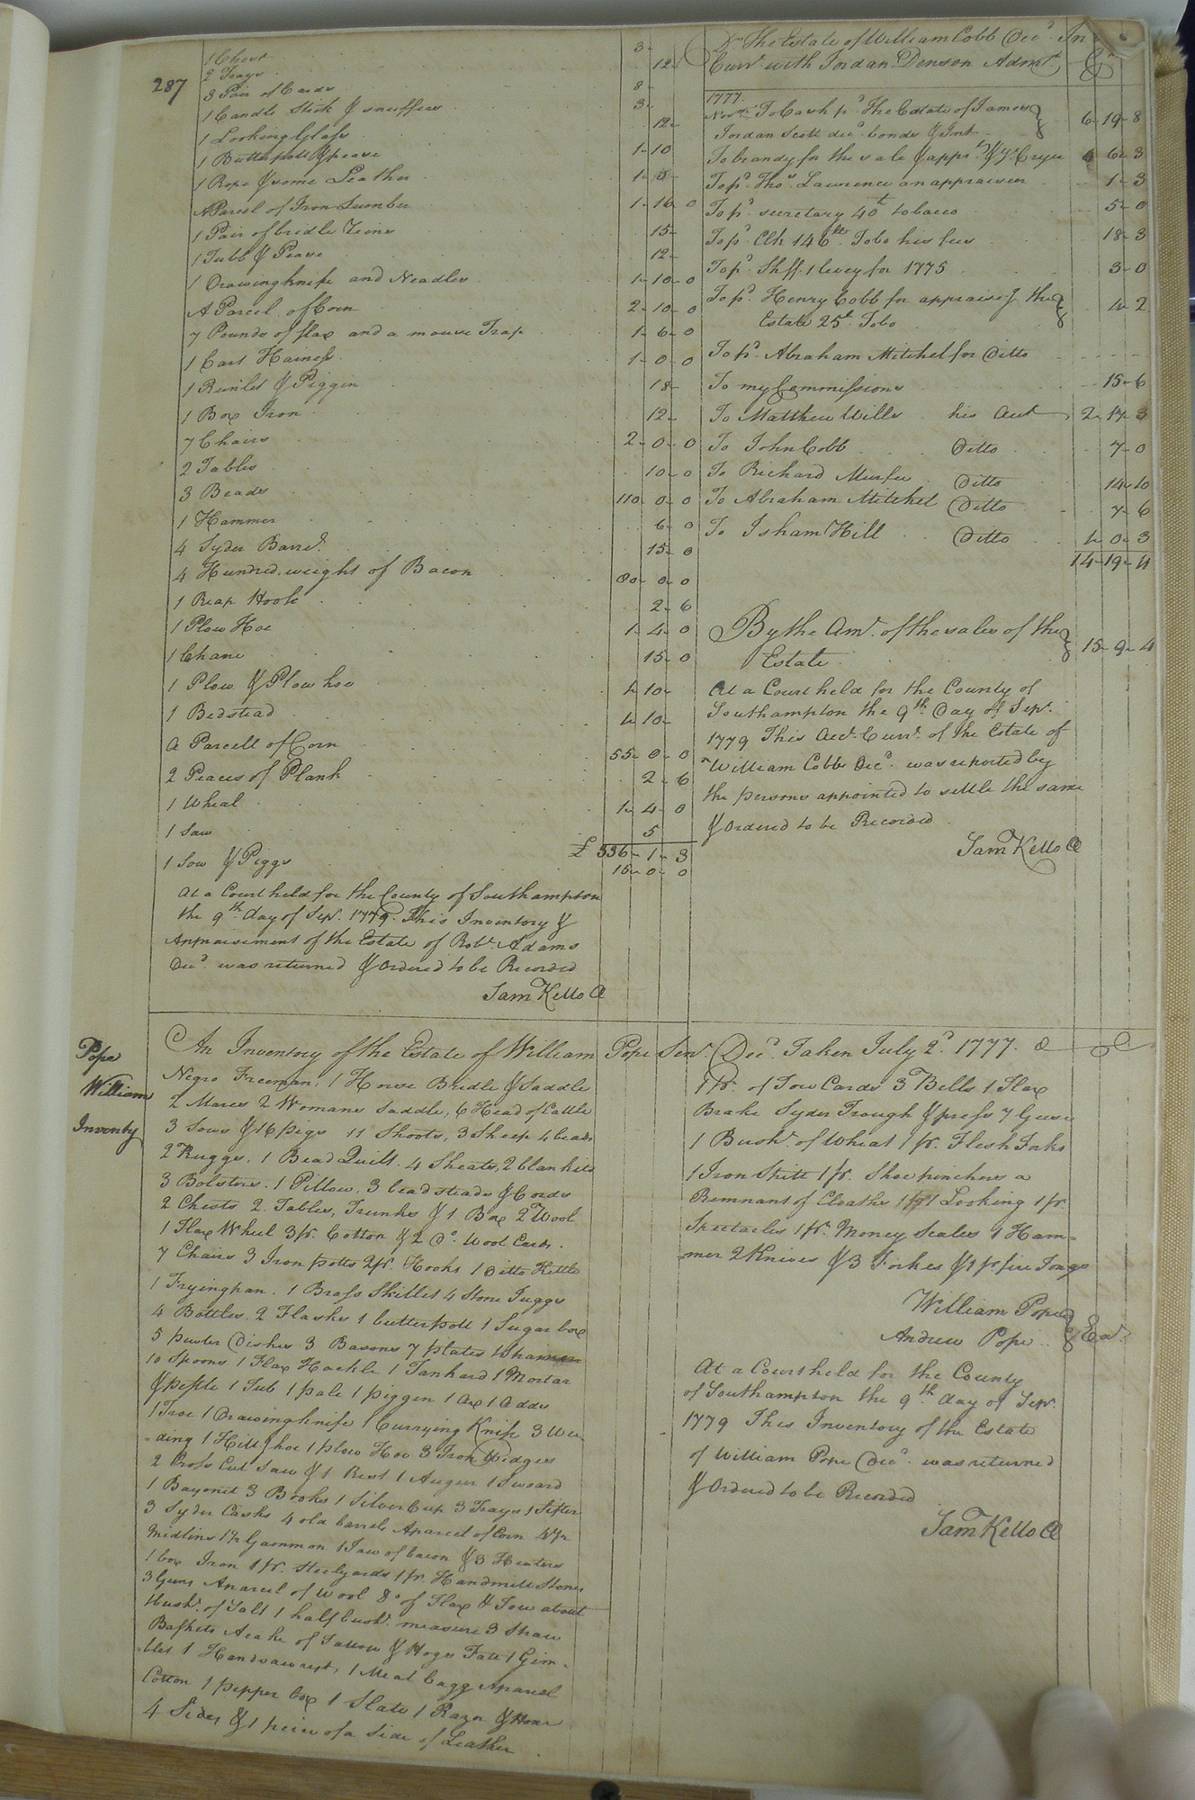 287
1 Chest 3-
2 Trays 12-
3 Pair of Cards 8-
1 Candle Stick & snuffers 3-
1 Looking Glass 12-
1 Butterpott & pease 1-10
1 Rope & some Leather 1-5-
A Parcel of Iron Lumber 1-16-0
1 Pair of bridle Reins 15-
1 Tubb & Pease 12-
1 Drawingknife and Neadles 1-10-0
A Parcel of Corn 2-10-0
7 Pounds of flax and a mouse Trap 1-6-0
1 Cart Harness 1-0-0
1 Runlet & Piggin 18-
1 Box Iron 12-
7 Chairs 2-0-0
2 Tables 10-0
3 Beads 110-0-0
1 Hammer 6-0
4 Syder Barrels 15-0
4 Hundred weight of Bacon 80-0-0
1 Reap Hook 2-6
1 Plow Hoe 1-4-0
1 Chane 15-0
1 Plow & Plow hoe 4-10-
1 Bedstead 4-10-
A Parcell of Corn 55-0-0
2 Peaces of Plank 2-6
1 Wheal 1-4-0
1 Saw 5
1 Sow & Piggs 15-0-0
£ 336-1-3
At a Court held for the County of Southampton
the 9th day of Sepr. 1779. This Inventory &
Appraisement of the Estate of Robt. Adams
Decd. was returned & Ordered to be Recorded
Sam Kello Cl
Dr. The Estate of William Cobb Decd. In
Curr. with Jordan Denson Admr. Cr
1777
Novr. To Cash pd. The Estate of James
Jordan Scott decd. bonds & Int. 6-19-8
To brandy for the sale & apprs. & ye Cryer 6-3
To pd. Thos. Lawrence an appraiser 1-3
To pd. secretary 40 lb tobacco 5-0
To pd. Clk 146 lb Tobo his fees 18-3
To pd. Shff. 1 levey for 1775 3-0
To pd. Henry Cobb for appraisg. the
Estate 25 lb. Tobo 4-2
To pd. Abraham Mitchel for Ditto
To my Commissions 15-6
To Matthew Wills his Acct 2-17-3
To John Cobb Ditto 7-0
To Richard Murfee Ditto 14-10
To Abraham Mitchel Ditto 7-6
To Isham Hill Ditto 4-0-3
14-19-4
By the Amt. of the sales of the
Estate 15-9-4
At a Court held for the County of
Southampton the 9th Day of Sepr.
1779 This Acct. Curr. of the Estate of
William Cobb Decd. was reported by
the persons appointed to settle the same
& Ordered to be Recorded
Sam Kello Cl
Pope
William
Inventy
An Inventory of the Estate of William Pope Senr. Decd. Taken July 2d. 1777.
Negro Freeman, 1 Horse Bridle & Saddle
2 Mares 2 Womans Saddle, 6 Head of Cattle
3 Sows & 16 pigs 11 Shoots, 3 Sheep 4 beads
2 Ruggs. 1 Bead Quilt. 4 Sheats, 2 blankits
3 Bolsters. 1 Pillow. 3 beadsteads & Cords
2 Chests 2 Tables, Trunks & 1 Box 2 Wool
1 Flax Wheel 3 pr. Cotton & 2 Do. Wool Cards.
7 Chairs 3 Iron potts 2 pr. Hooks 1 Ditto Kettle
1 Fryingpan. 1 Brass Skillet 4 Stone Juggs
4 Bottles. 2 Flasks 1 butterpott 1 Sugar box
5 pewter Dishes 3 Basons 7 plates
10 Spoons 1 Flax Hackle 1 Tankard 1 Mortar
& pestle 1 Tub 1 pale 1 piggin 1 Ax 1 Addes
1 Froe 1 Drawingknife 1 Currying Knife 3 Wee
-ding 1 Hilling hoe 1 plow Hoe 3 Iron Widges
2 Cross Cut Saw & 1 Rest 1 Auger 1 Sword
1 Bayonet 3 Books 1 Silver Cup 3 Trays 1 Sifter
3 Syder Casks 4 old barrels A parcel of Corn
Midlins 1 pr Gammon 1 Jaw of bacon & 3 Heaters
1 box Iron 1 pr. Steelyards 1 pr. Handmill Stones
3 Guns A parcel of Wool Do of Flax & Tow about
bush. of Salt 1 half bush. measure 3 Straw
Baskets A cake of Tallow & Hogs Fatt 1 Gim-
-blet 1 Handsaw rest, 1 Meal bagg A parcel
Cotton 1 pepper box 1 Slate 1 Razor & Hone
4 Sides & 1 peice of a Side of Leather.
1 pr. of Tow Cards 3 Bells 1 Flax
Brake Syder Trough & press 7 Geese
1 Bushl. of Wheat 1 pr. Flesh Forks
1 Iron Spitt 1 pr. Shoe pinchers a
Remnant of Cloathe 1 Looking 1 pr.
Spectacles 1 pr. Money Scales 1 Ham-
mer 2 Knives & 3 Forkes & 1 pr fire Tongs
William Pope
Andrew Pope Exrs.
At a Court held for the County
of Southampton the 9th day of Sepr.
1779 This Inventory of the Estate
of William Pope Decd. was returned
& Ordered to be Recorded
Sam Kello Cl